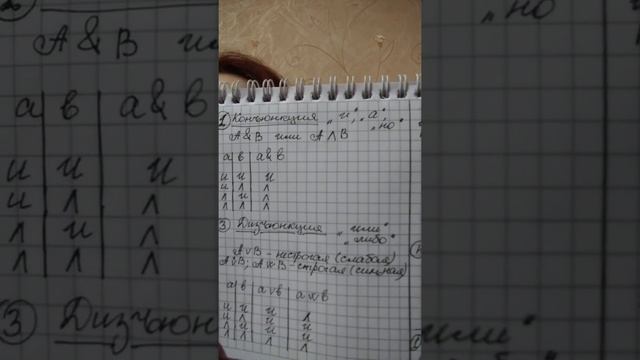 ② Конъюнкция „и", „а",
„но"
A&B или A∧B
a | b | a&b
и | и | и
и | л | л
л | и | л
л | л | л
③ Дизъюнкция „или"
„либо"
A∨B - нестрогая (слабая)
A⊻B; A∨∨B - строгая (сильная)
a | b | a∨b | a∨∨b
и | и | и | л
и | л | и | и
л | и | и | и
л | л | л | л